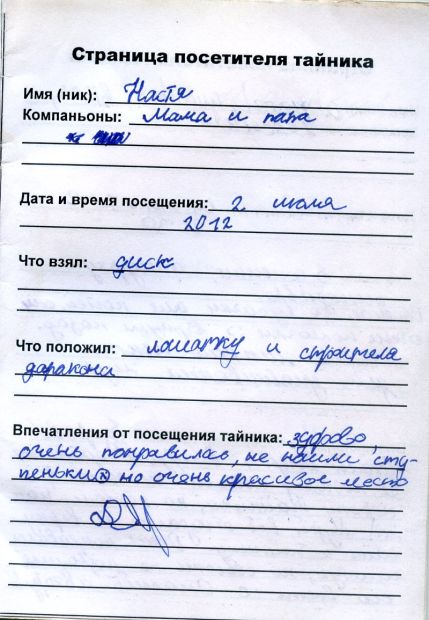 Страница посетителя тайника
Имя (ник): Настя
Компаньоны: Мама и папа
Дата и время посещения: 2 июля
2012
Что взял: диск
Что положил: лопатку и строителя
даракона
Впечатления от посещения тайника: здорово,
очень понравилась, не нашли сту-
пеньки но очень красивое место